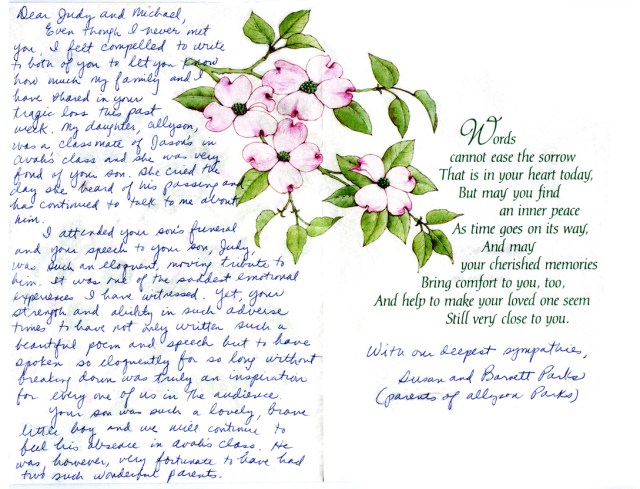 Dear Judy and Michael,
Even though I never met
you, I felt compelled to write
to both of you to let you know
how much my family and I
have shared in your
tragic loss this past
week. My daughter, allyson,
was a classmate of Jason's in
avah's class and she was very
fond of your son. She cried the
day she heard of his passing and
has continued to talk to me about
him.
I attended your son's funeral
and your speech to your son, Judy,
was such an eloquent, moving tribute to
him. It was one of the saddest emotional
experiences I have witnessed. Yet, your
strength and ability in such adverse
times to have not only written such a
beautiful poem and speech but to have
spoken so eloquently for so long without
breaking down was truly an inspiration
for every one of us in the audience.
Your son was such a lovely, brave
little boy and we will continue to
feel his absence in avah's class. He
was, however, very fortunate to have had
two such wonderful parents.
Words
cannot ease the sorrow
That is in your heart today,
But may you find
an inner peace
As time goes on its way,
And may
your cherished memories
Bring comfort to you, too,
And help to make your loved one seem
Still very close to you.
With our deepest sympathies,
Susan and Barnett Parks
(parents of allyson Parks)